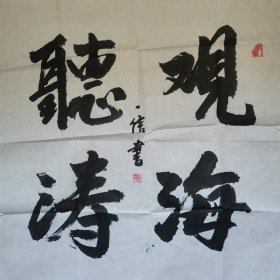 观海
聽涛
一信書